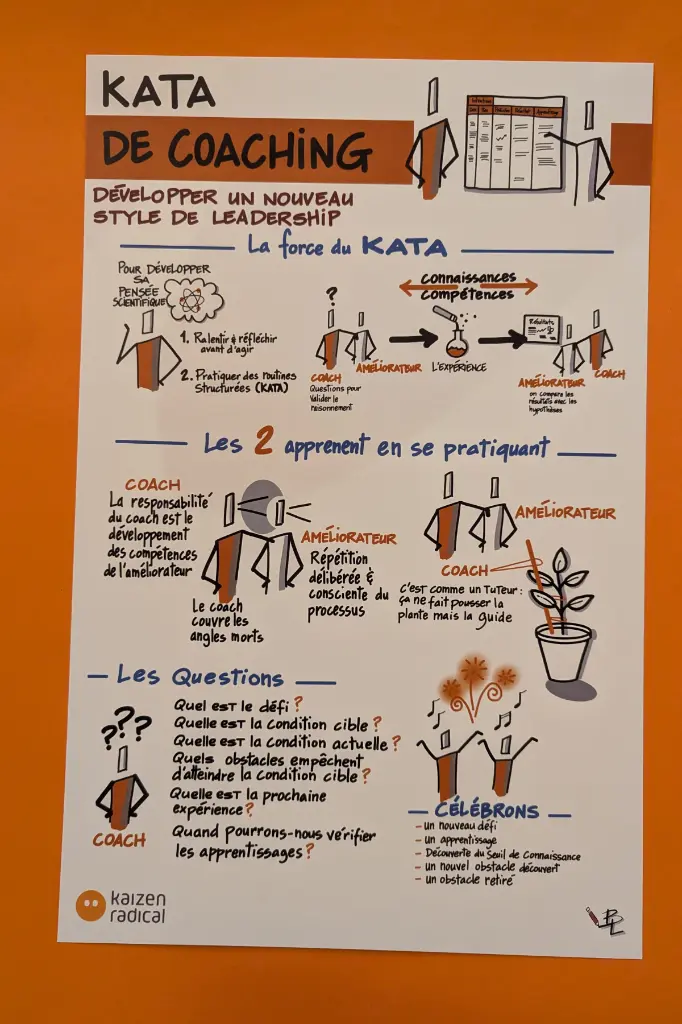 KATA
DE COACHING
DÉVELOPPER UN NOUVEAU
STYLE DE LEADERSHIP
La force du KATA
POUR DÉVELOPPER
SA
PENSÉE
SCIENTIFIQUE
1. Ralentir & réfléchir
avant d'agir
2. Pratiquer des routines
Structurées (KATA)
?
COACH
Questions pour
Valider le
raisonnement
AMÉLIORATEUR
connaissances
compétences
L'EXPÉRIENCE
Résultats
AMÉLIORATEUR
on compare les
résultats avec les
hypothèses
COACH
Les 2 apprenent en se pratiquant
COACH
La responsabilité
du coach est le
développement
des compétences
de l'améliorateur
Le coach
couvre les
angles morts
AMÉLIORATEUR
Répétition
délibérée &
consciente du
processus
AMÉLIORATEUR
COACH
C'est comme un Tuteur :
ça ne fait pousser la
plante mais la guide
Les Questions
???
COACH
Quel est le défi ?
Quelle est la condition cible ?
Quelle est la condition actuelle ?
Quels obstacles empêchent
d'atteindre la condition cible ?
Quelle est la prochaine
expérience ?
Quand pourrons-nous vérifier
les apprentissages ?
CÉLÉBRONS
- un nouveau défi
- un apprentissage
- Découverte du Seuil de Connaissance
- un nouvel obstacle découvert
- un obstacle retiré
kaizen
radical